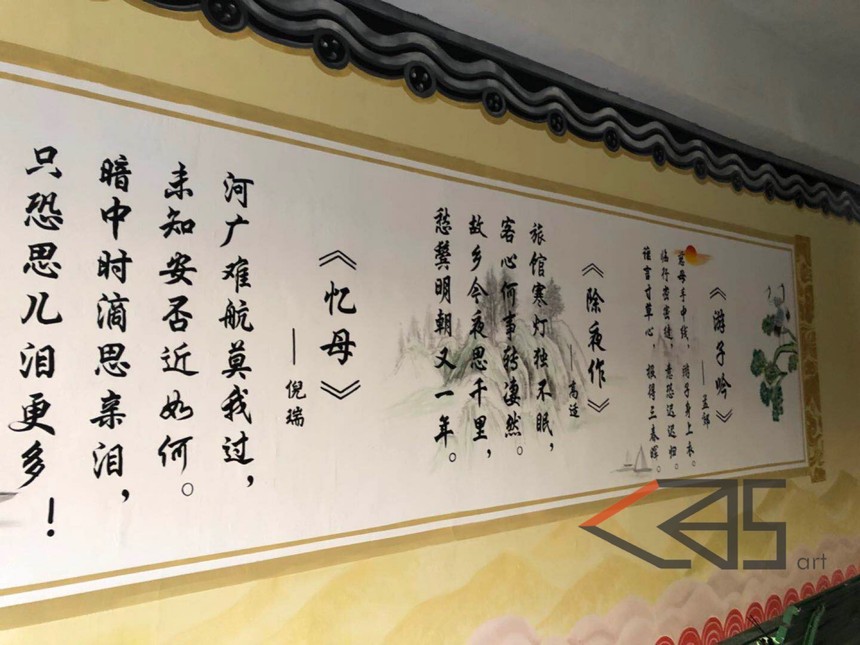 《游子吟》
——孟郊
慈母手中线，游子身上衣。
临行密密缝，意恐迟迟归。
谁言寸草心，报得三春晖。
《除夜作》
——高适
旅馆寒灯独不眠，
客心何事转凄然。
故乡今夜思千里，
愁鬓明朝又一年。
《忆母》
——倪瑞
河广难航莫我过，
未知安否近如何。
暗中时滴思亲泪，
只恐思儿泪更多！
art